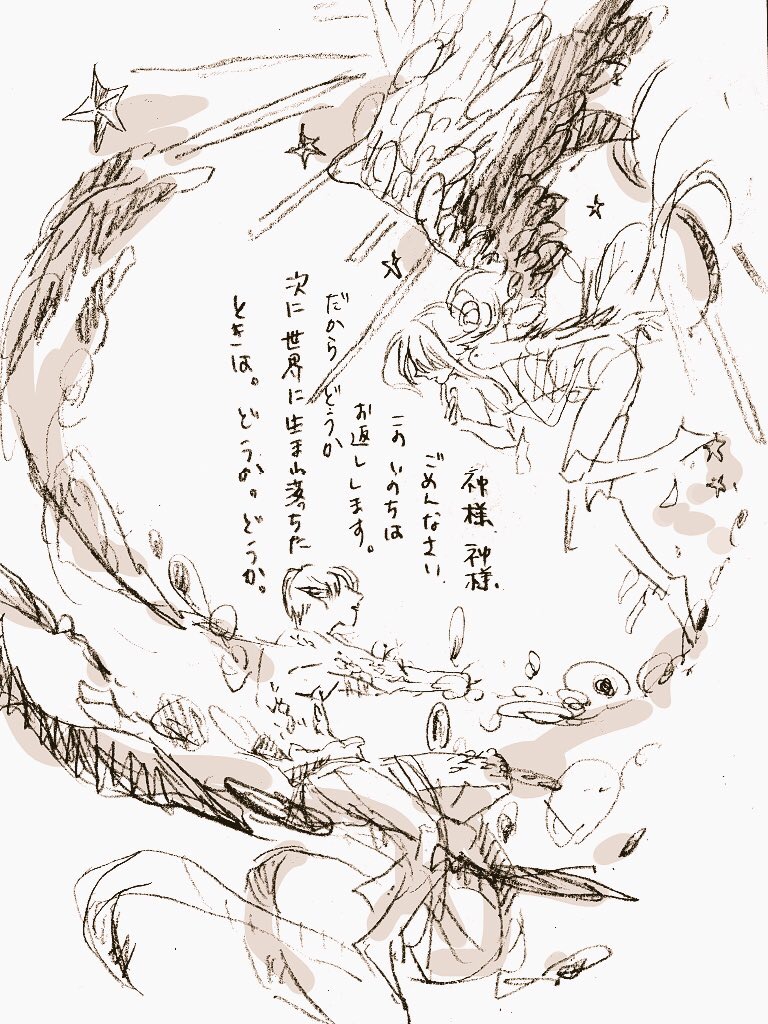 神様、神様、
ごめんなさい、
このいのちは
お返しします。
だからどうか
次に世界に生まれ落ちた
ときは。どうか。どうか。